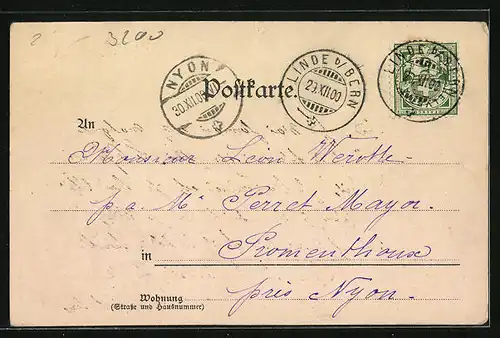 3200
NYON
30.XII.00
LINDE b/BERN
29.XII.00
LINDE b/BERN
Postkarte.
An
Monsieur Léon Werotte
p. a. Mr Perret Mayor
in Promenthoux
près Nyon.
Wohnung
(Straße und Hausnummer)